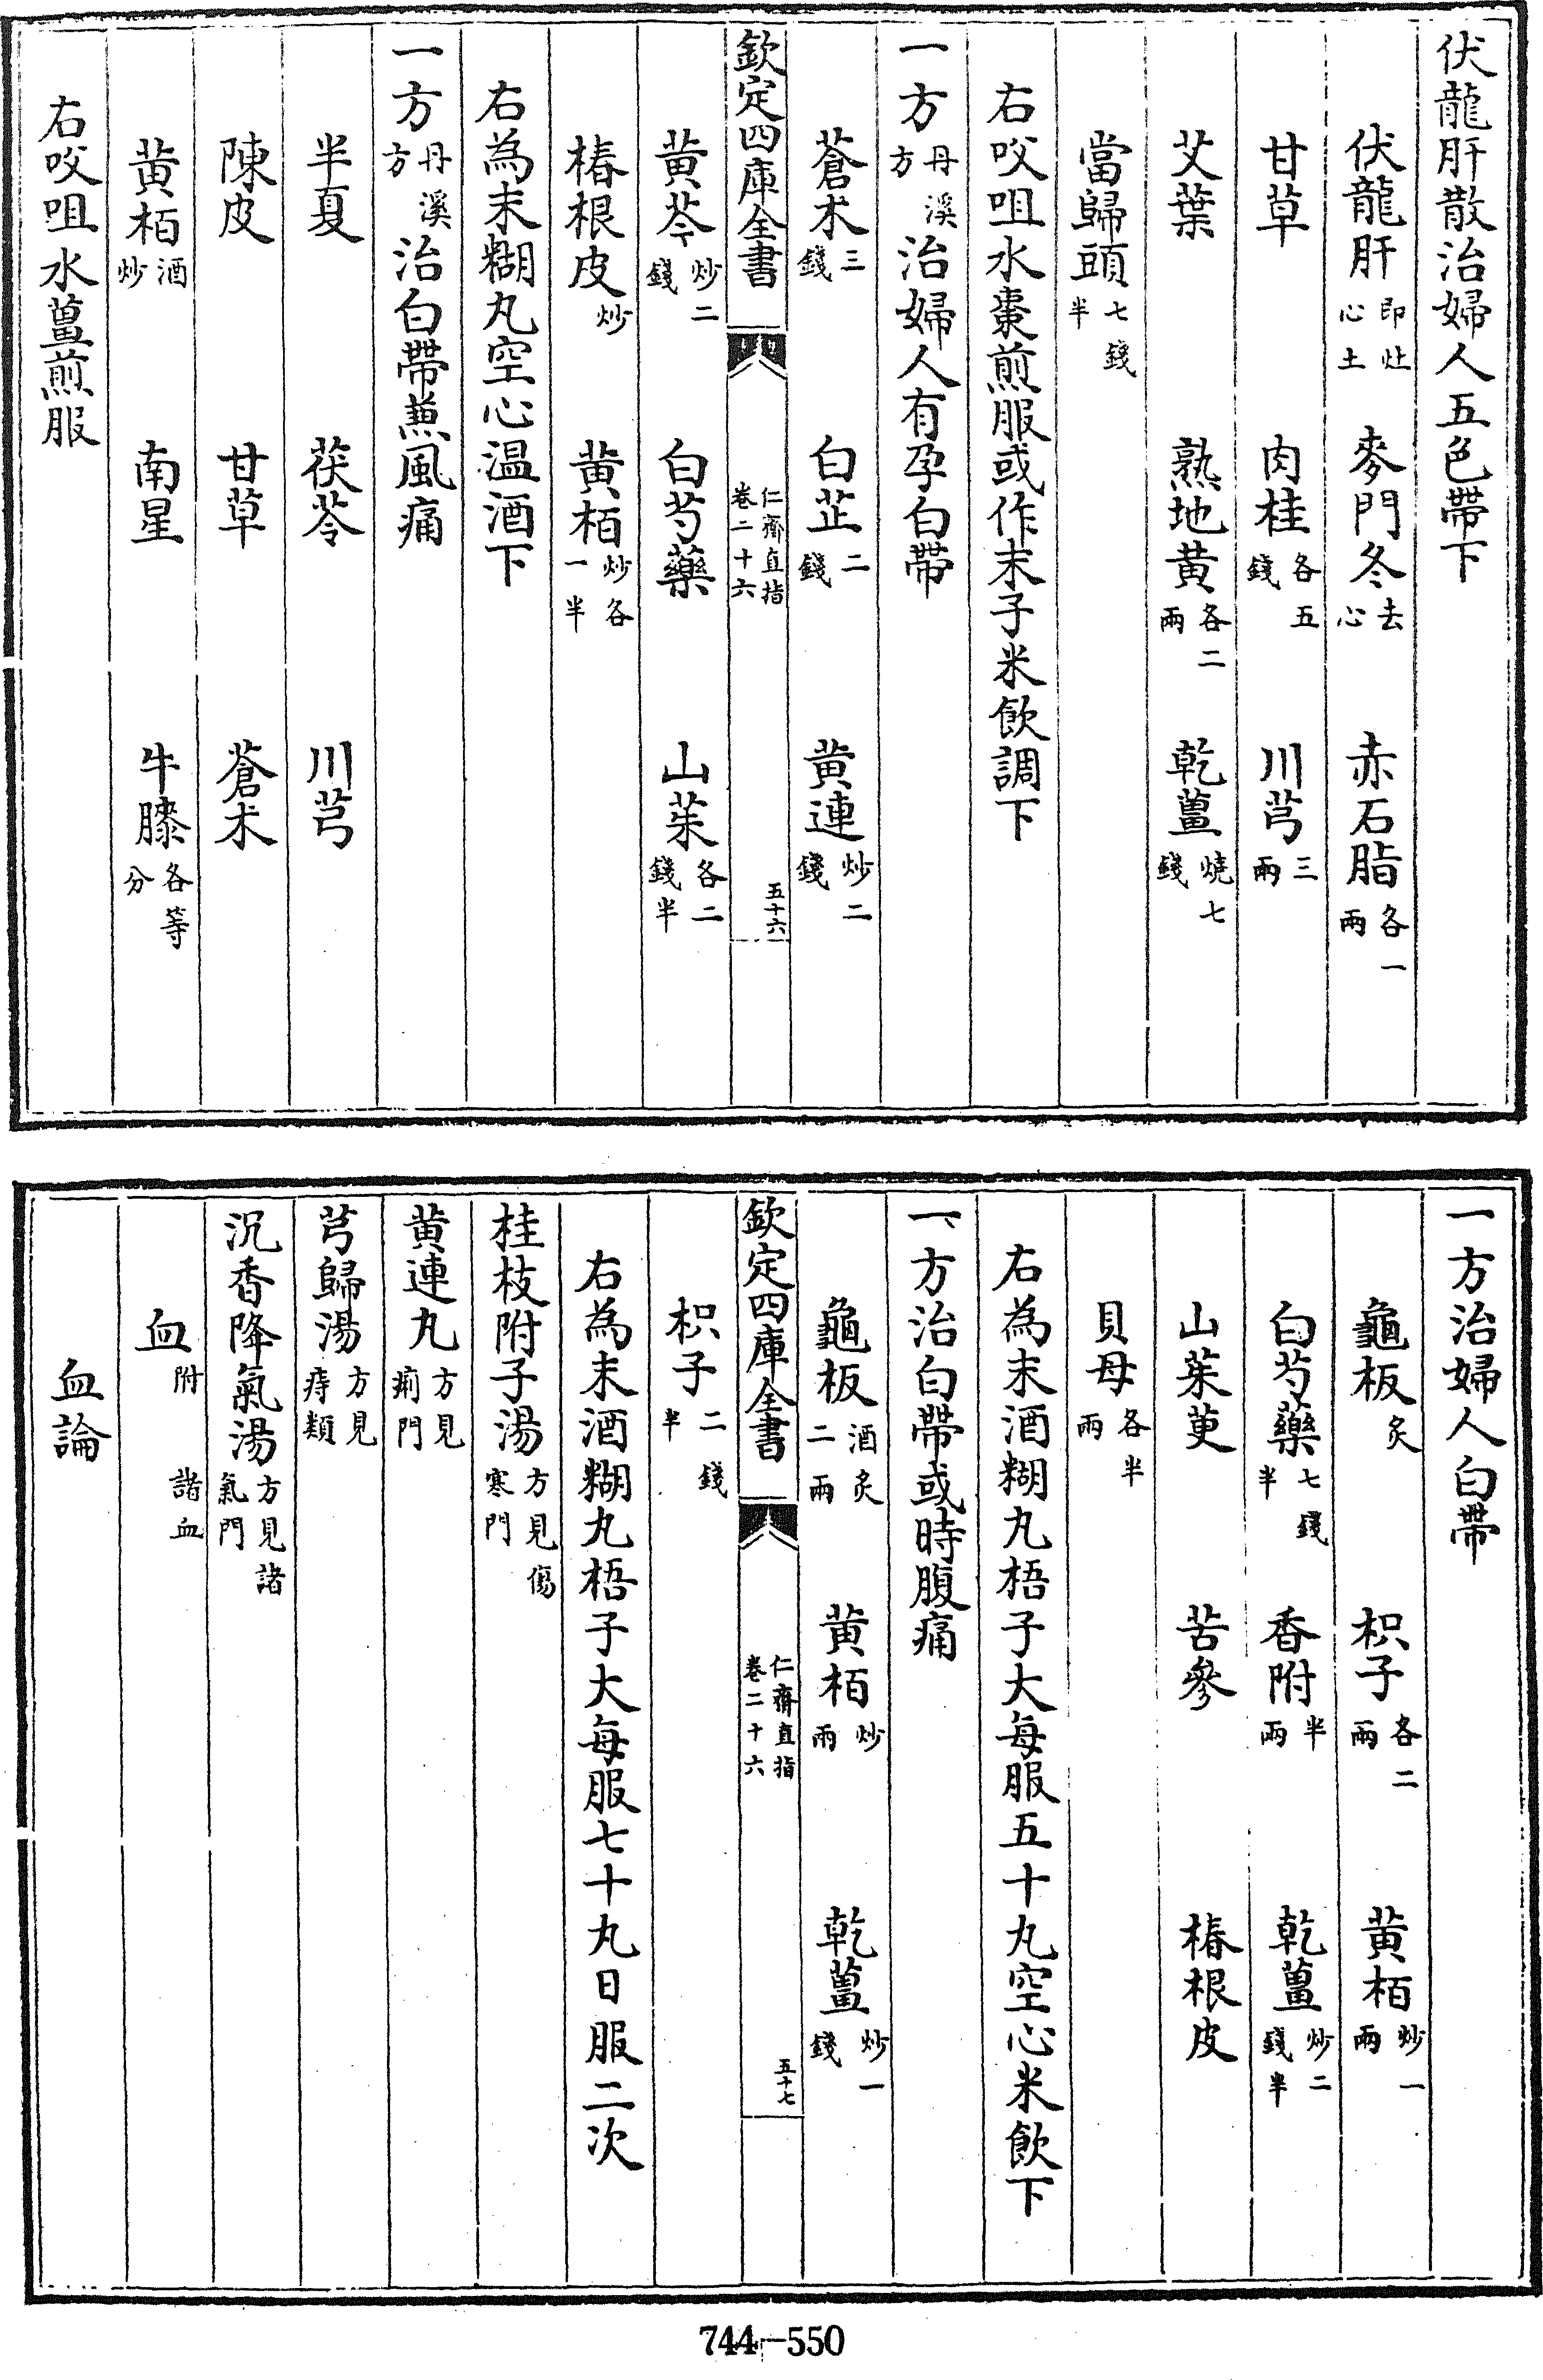 伏龍肝散治婦人五色帶下
伏龍肝即灶心土 麥門冬去心 赤石脂各一兩
甘草 肉桂各五錢 川芎三兩
艾葉 熟地黃各二兩 乾薑燒七錢
當歸頭七錢半
右㕮咀水棗煎服或作末子米飲調下
一方丹溪方治婦人有孕白帶
蒼朮三錢 白芷二錢 黃連炒二錢
欽定四庫全書 仁齋直指卷二十六 五十六
黃芩炒二錢 白芍藥 山茱各二錢半
椿根皮炒 黃栢炒各一半
右為末糊丸空心温酒下
一方丹溪方治白帶兼風痛
半夏 茯苓 川芎
陳皮 甘草 蒼朮
黃栢酒炒 南星 牛膝各等分
右㕮咀水薑煎服
一方治婦人白帶
龜板炙 枳子各二兩 黃栢炒一兩
白芍藥七錢半 香附半兩 乾薑炒二錢半
山茱萸 苦參 椿根皮
貝母各半兩
右為末酒糊丸梧子大每服五十丸空心米飲下
一方治白帶或時腹痛
龜板酒炙二兩 黃栢炒兩 乾薑炒一錢
欽定四庫全書 仁齋直指卷二十六 五十七
枳子二錢半
右為末酒糊丸梧子大每服七十丸日服二次
桂枝附子湯方見傷寒門
黃連丸方見痢門
芎歸湯方見痔類
沉香降氣湯方見諸氣門
血附諸血
血論
744-550